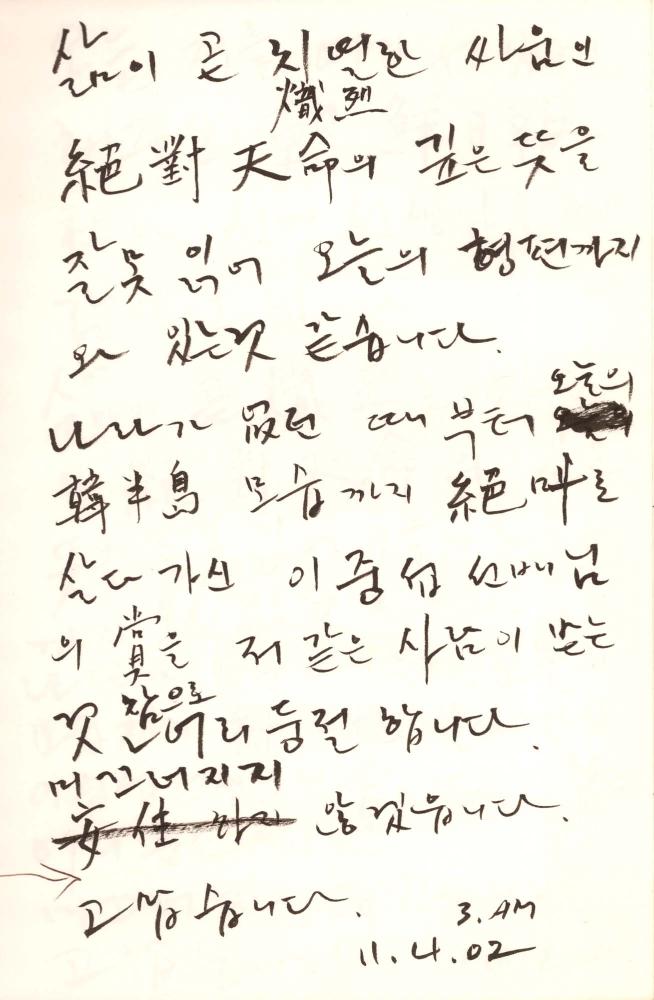 삶이 곧 치열한 싸움인
熾烈
絕對天命의 깊은 뜻을
잘못 읽어 오늘의 형편까지
와 있는것 같습니다.
오늘의
나라가 없던 때부터
韓半島 모습까지 絕叫로
살다 가신 이중섭 선배님
의 賞을 저 같은 사람이 받는
것 참으로 어리둥절 합니다.
미끄러지지
安住하지 않겠습니다.
고맙습니다.
3. AM
11.4.02